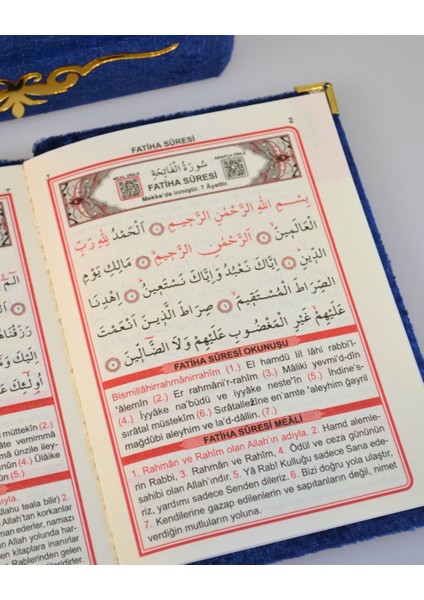 FATİHA SÛRESİ
2
سُورَةُ الْفَاتِحَةِ
FATİHA SÛRESİ
Mekke'de inmiştir. 7 Âyettir.
بِسْمِ اللّٰهِ الرَّحْمٰنِ الرَّحٖيمِ ١ اَلْحَمْدُ لِلّٰهِ رَبِّ
الْعَالَمٖينَ ٢ اَلرَّحْمٰنِ الرَّحٖيمِ ٣ مَالِكِ يَوْمِ
الدّٖينِ ٤ اِيَّاكَ نَعْبُدُ وَاِيَّاكَ نَسْتَعٖينُ ٥ اِهْدِنَا
الصِّرَاطَ الْمُسْتَقٖيمَ ٦ صِرَاطَ الَّذٖينَ اَنْعَمْتَ
عَلَيْهِمْ غَيْرِ الْمَغْضُوبِ عَلَيْهِمْ وَلَا الضَّٓالّٖينَ ٧
FATİHA SÛRESİ OKUNUŞU
Bismillâhirrahmânirrahîm (1.) El hamdü lil lâhi rabbi'l-
'âlemîn (2.) Er rahmâni'r-rahîm (3.) Mâliki yevmi'd-dîn
(4.) İyyâke na'büdü ve iyyâke neste'în (5.) İhdine's-
sırâtal müstekîm (6.) Sırâtallezîne en'amte 'aleyhim ğayril
mağdûbi aleyhim ve la'd-dâllîn. (7.)
FATİHA SÛRESİ MEÂLİ
1. Rahmân ve Rahîm olan Allah'ın adıyla. 2. Hamd alemle-
rin Rabbi, 3. Rahmân ve Rahîm, 4. Ödül ve ceza gününün
sahibi olan Allah'ındır. 5. Yâ Rab! Kulluğu sadece Sana ede-
riz, yardımı sadece Senden dileriz. 6. Bizi doğru yola ulaştır,
7. Kendilerine gazap edilenlerin ve sapıtanların değil, nimet
verdiğin mutluların yoluna.